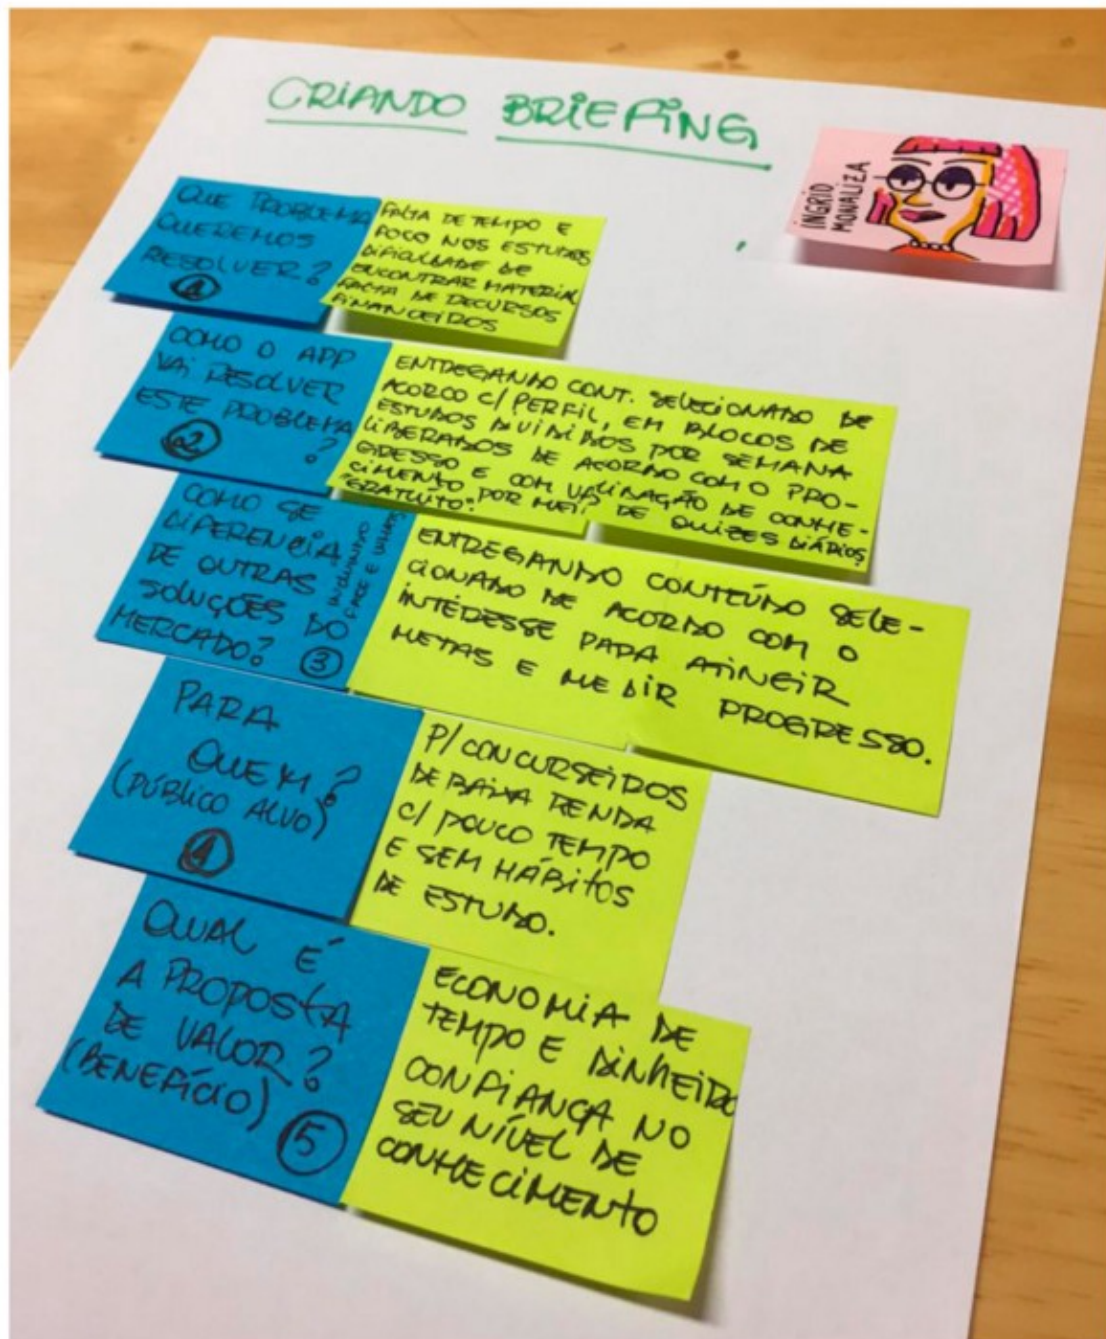 CRIANDO BRIEFING
INGRID
MONALIZA
QUE PROBLEMA
QUEREMOS
RESOLVER?
1
FALTA DE TEMPO E
FOCO NOS ESTUDOS
DIFICULDADE DE
ENCONTRAR MATERIAL
FALTA DE RECURSOS
FINANCEIROS
COMO O APP
VAI RESOLVER
ESTE PROBLEMA
?
2
ENTREGANDO CONT. SELECIONADO DE
ACORCO C/ PERFIL, EM BLOCOS DE
ESTUDOS DIVIDIDOS POR SEMANA
LIBERADOS DE ACORDO COM O PRO-
GRESSO E COM VALIDAÇÃO DE CONHE-
CIMENTO POR MEIO DE QUIZES DIÁRIOS
"GRATUITO".
COMO SE
DIFERENCIA
DE OUTRAS
SOLUÇÕES DO
MERCADO?
3
INCLUINDO
FACE E WHATS
ENTREGANDO CONTEÚDO SELE-
CIONADO DE ACORDO COM O
INTERESSE PARA ATINGIR
METAS E MEDIR PROGRESSO.
PARA
QUEM?
(PÚBLICO ALVO)
4
P/ CONCURSEIROS
DE BAIXA RENDA
C/ POUCO TEMPO
E SEM HÁBITOS
DE ESTUDO.
QUAL É
A PROPOSTA
DE VALOR?
(BENEFÍCIO)
5
ECONOMIA DE
TEMPO E DINHEIRO
CONFIANÇA NO
SEU NÍVEL DE
CONHECIMENTO